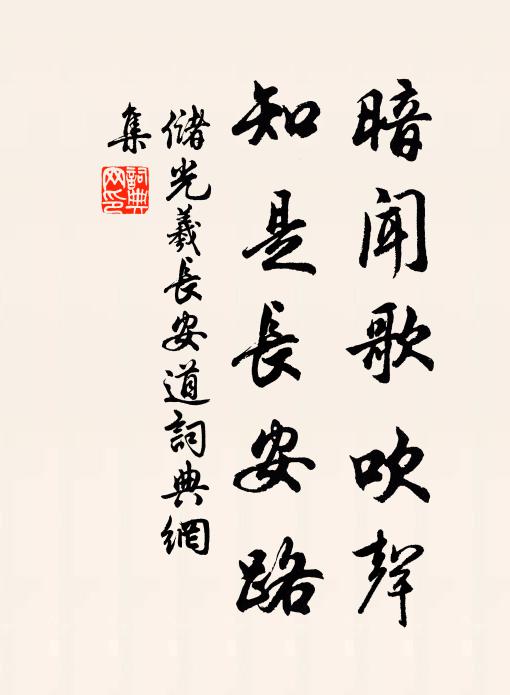 暗聞歌吹聲
知是長安路
儲光羲長安道詞典網
集
詞典
网印